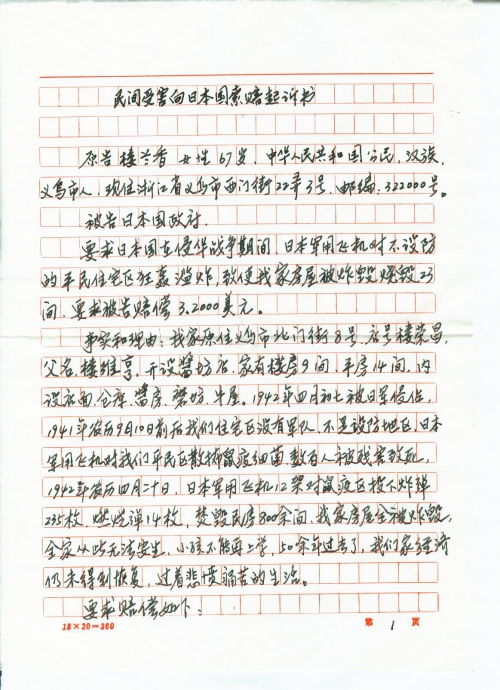 民间受害向日本国索赔起诉书
原告楼兰香 女性 67岁,中华人民共和国公民,汉族,
义乌市人,现住浙江省义乌市西门街22弄3号,邮编:322000号。
被告日本国政府.
要求日本国在侵华战争期间,日本军用飞机对不设防
的平民住宅区狂轰滥炸,致使我家房屋被炸毁烧毁23
间,要求被告赔偿3.2000美元。
事实和理由:我家原住义乌市北门街8号,店号楼荣昌,
父名楼维亨,开设 坊店,家有楼房9间,平房14间,内
设店面、仓库、 房、 坊、牛屋。1942年四月初七被日军侵占,
1941年农历9月10日前后我们住宅区没有军队,不是设防地区,日本
军用飞机对我们平民区散播鼠疫细菌数百人年被残害致死,
1942年农历四月二十日,日本军用飞机12架对鼠疫区投下炸弹
235枚,燃烧弹14枚,焚毁民房800余间,我家房屋全被炸毁,
全家从此无法安生,小孩不能再上学,50余年过去了,我们家经济
仍未得到恢复,过着悲愤痛苦的生活。
要求赔偿如下:
18×20=360
第 1 页